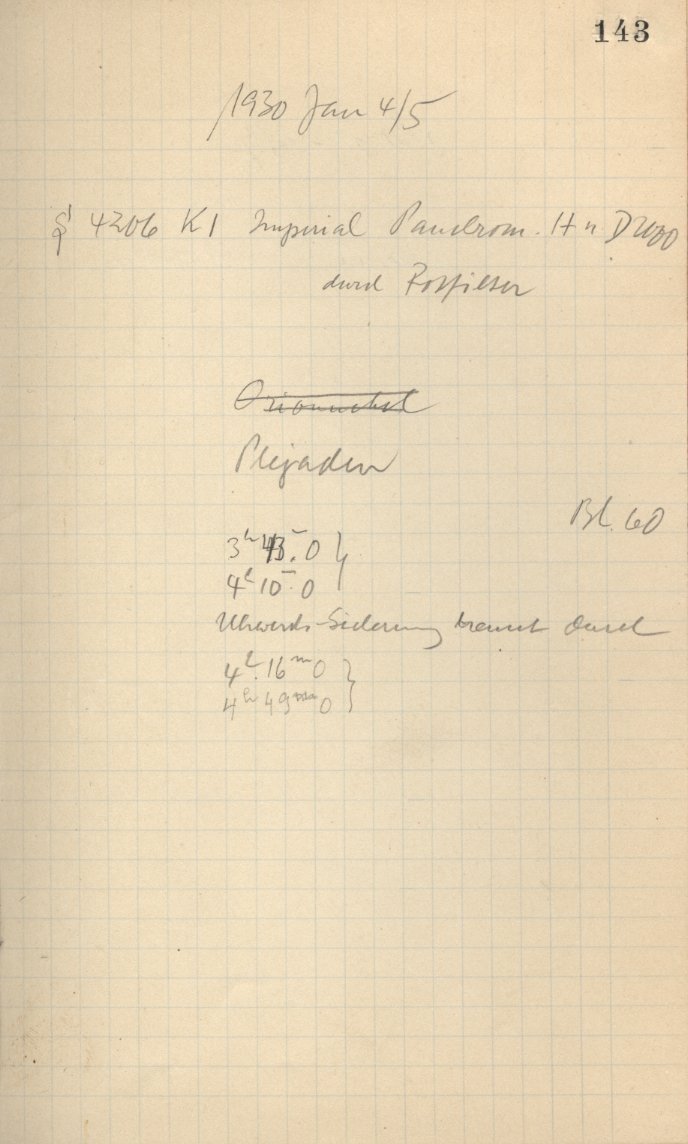 143
1930 Jan 4/5
4206 K1 Imperial Panchrom. H u D 1200
durch Rotfilter
Orionnebel
Plejaden
Bl. 60
3h 43m.0 }
4h 10m.0
Uhrwerks-Sicherung brennt durch
4h 16m 0 }
4h 49m 0